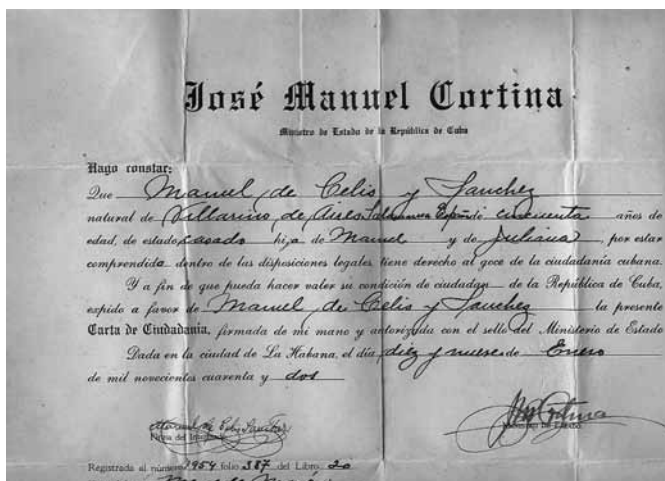 José Manuel Cortina
Ministro de Estado de la República de Cuba
Hago constar:
Que Manuel de Celis y Sanchez
natural de Villarino de Aires Salamanca España de cincuenta años de
edad, de estado casado hijo de Manuel y de Juliana, por estar
comprendido dentro de las disposiciones legales, tiene derecho al goce de la ciudadanía cubana.
Y a fin de que pueda hacer valer su condición de ciudadano de la República de Cuba,
expido a favor de Manuel de Celis y Sanchez la presente
Carta de Ciudadanía, firmada de mi mano y autorizada con el sello del Ministerio de Estado
Dada en la ciudad de La Habana, el día diez y nueve de Enero
de mil novecientos cuarenta y dos
Manuel de Celis Sanchez
Firma del Interesado
Ministro de Estado
Registrada al número 1954 folio 387 del Libro 20